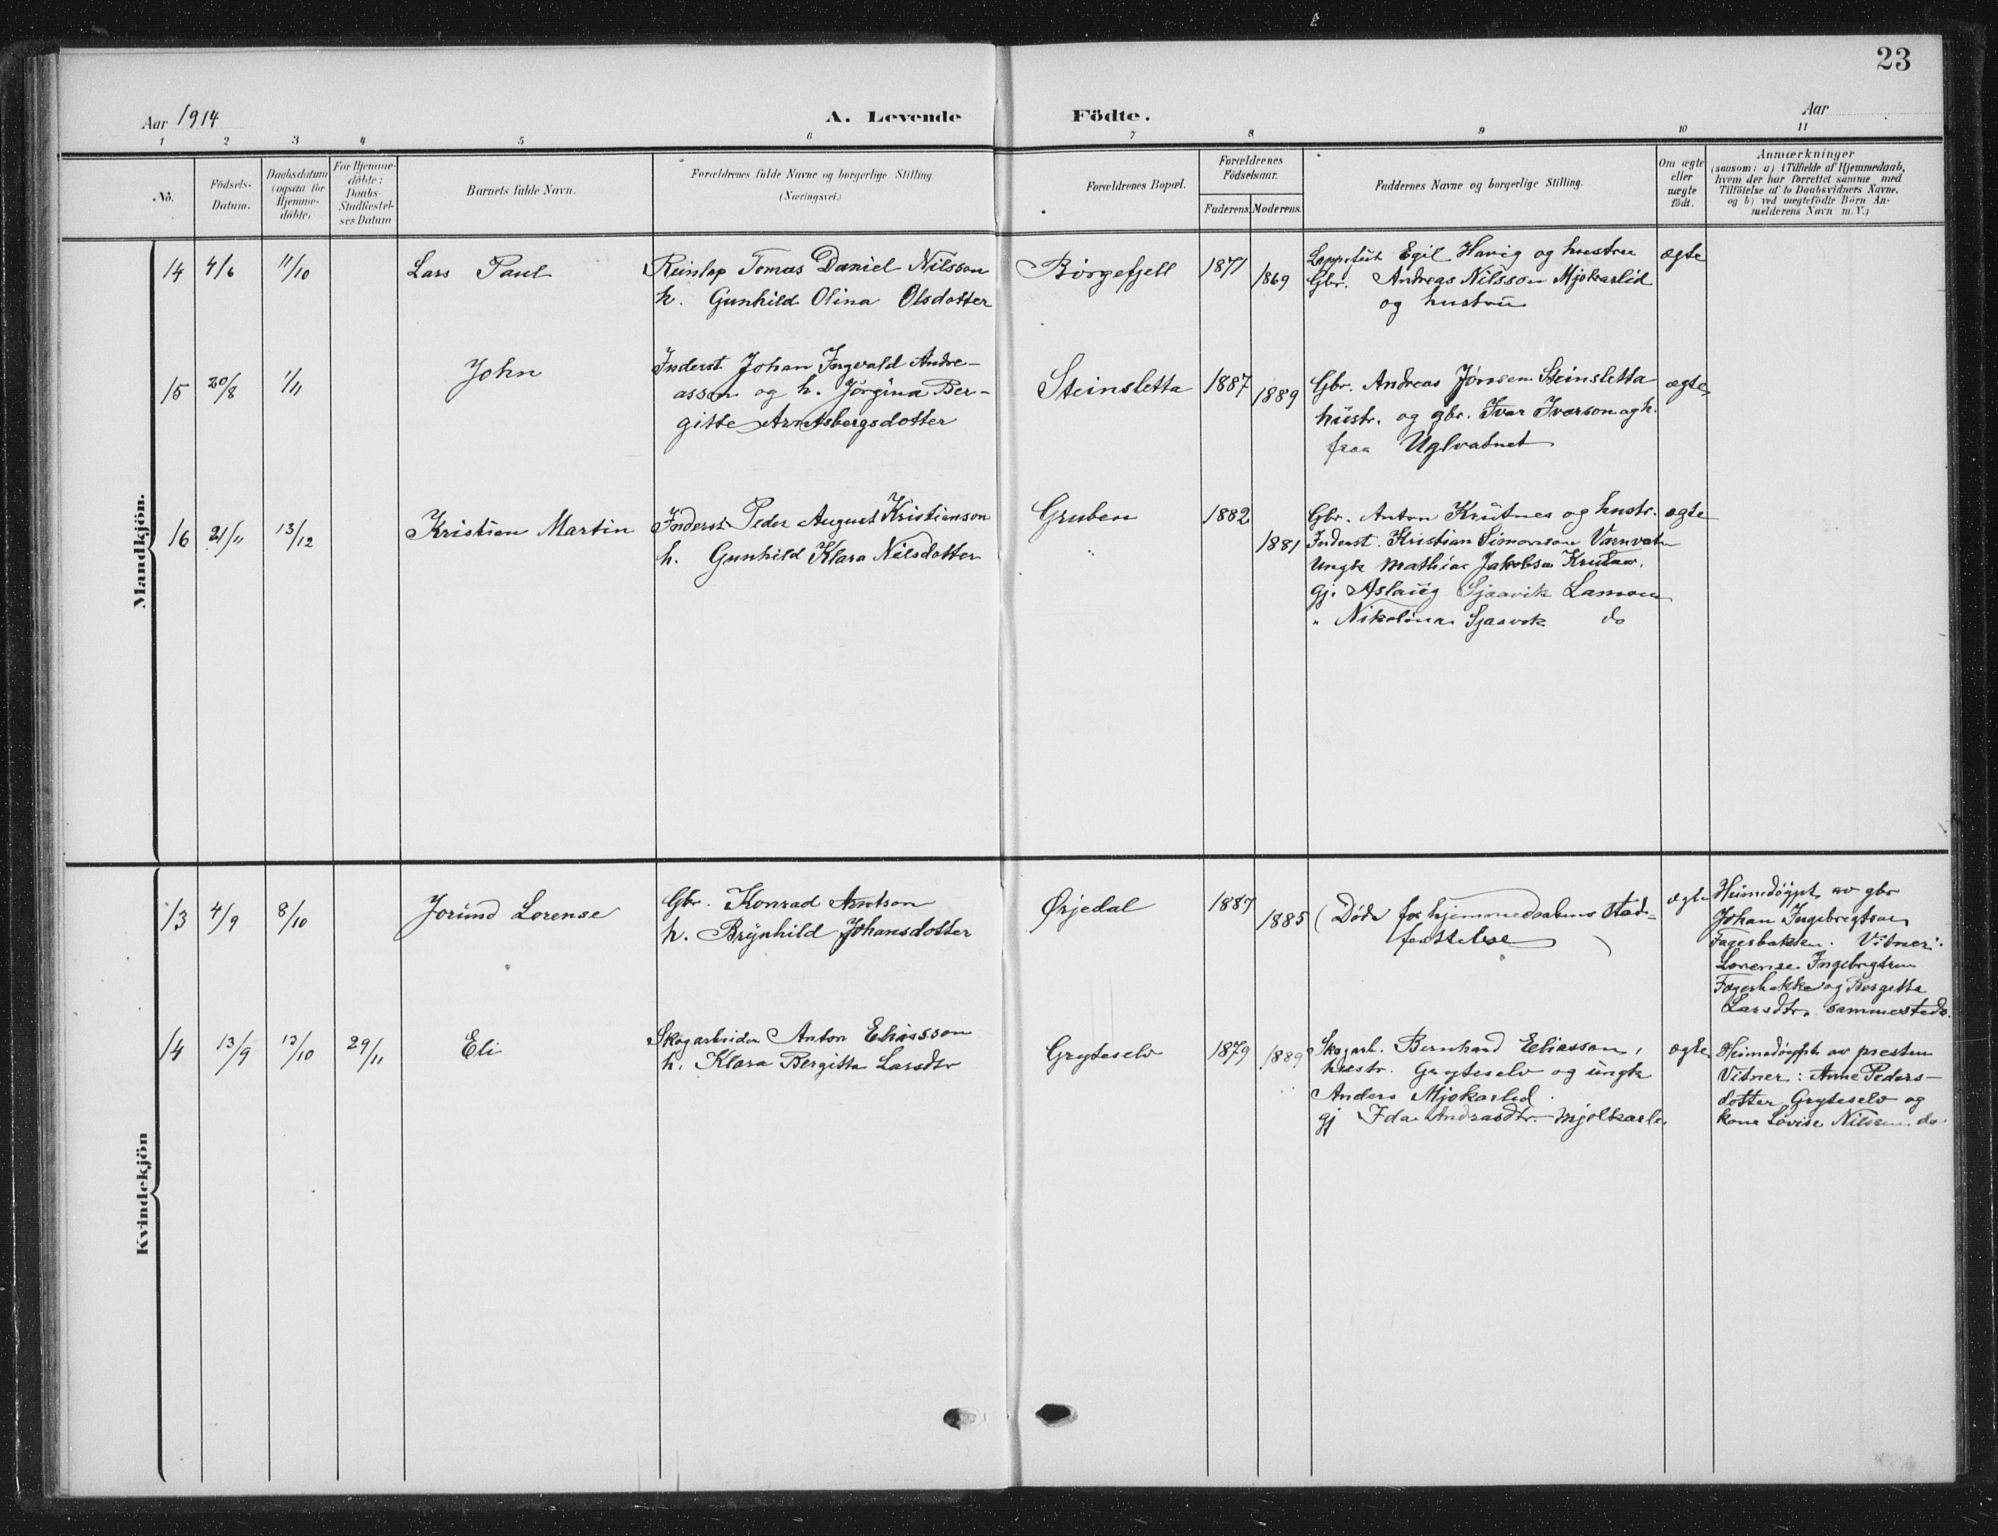 23
Aar 1914
A. Levende Födte.
Aar
1 2 3 4 5 6 7 8 9 10 11
No.
Födsels-
Datum.
Daabsdatum
(ogsaa for
Hjemme-
döbte)
For Hjemme-
döbte:
Daabs-
Stadfæstel-
ses Datum
Barnets fulde Navn.
Forældrenes fulde Navne og borgerlige Stilling
(Næringsvei.)
Forældrenes Bopæl.
Forældrenes
Födselsaar.
Faderens. Moderens.
Faddernes Navne og borgerlige Stilling.
Om ægte
eller
uægte
födt.
Anmærkninger
(saasom: a) i Tilfælde af Hjemmedaab,
hvem der har forrettet samme med
Tilföielse af to Daabsvidners Navne,
og b) ved uægtefödte Börn An-
melderens Navn m. V.)
Mandkjön.
14 4/6 11/10 Lars Paul
Reinlap Tomas Daniel Nilsson
h. Gunhild Olina Olsdotter
Børgefjell 1871 1869
Egil Havig og hustru
Gbr. Andreas Nilsson Mjokarlid
og hustru
ægte
15 20/8 1/11 John
Inderst Johan Ingvald Andre-
assen og h. Jørgina Ber-
gitte Arntsbergsdotter
Steinsletta 1887 1889
Gbr. Andreas Jønsen Steinsletta
hustr. og gbr. Ivar Iverson og h.
fraa Uglvatnet
ægte
16 21/11 13/12 Kristian Martin
Inderst Peder August Kristianson
h. Gunhild Klara Nilsdotter
Gruben 1882 1881
Gbr. Anton Krutnes og hustr.
Inderst. Kristian Simonson
Ungk Mathias Jakobsen
gj. Aslaug Sjaavik
" Nikolina Sjaavik do
ægte
Kvindekjön
13 4/9 8/10 Jorund Lorense
Gbr. Konrad Arntson
h. Brynhild Johansdotter
Ørjedal 1887 1885
(Døde før hjemmedaabens stad-
festtelse)
ægte
Heimedøypt av gbr
Johan Ingebregtsen
Fagerbakken. Vitner:
Lorense Ingebregtsen
Fagerbakke og Bergitta
Larsdtr. sammesteds.
14 13/9 13/10 29/11 Eli
Skogarbeider Anton Eliasson
h. Klara Bergitta Larsdtr
Gryteselv 1879 1889
Skogarb. Bernhard Eliasson,
hustr. Gryteselv og ungk
Anders Mjokarlid
gj Ida Andrasdtr.
ægte
Heimedøypt av presten
Vitner: Anne Peders-
dotter Gryteselv og
kone Lovise Nilssen do